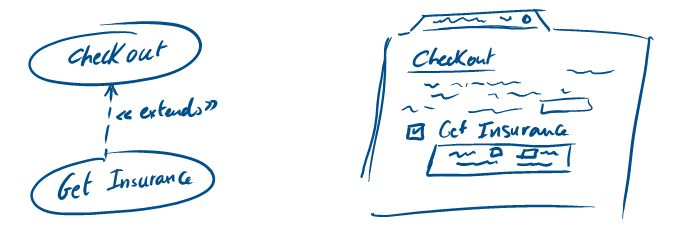 Checkout
<< extends >>
Get Insurance
Checkout
Get Insurance